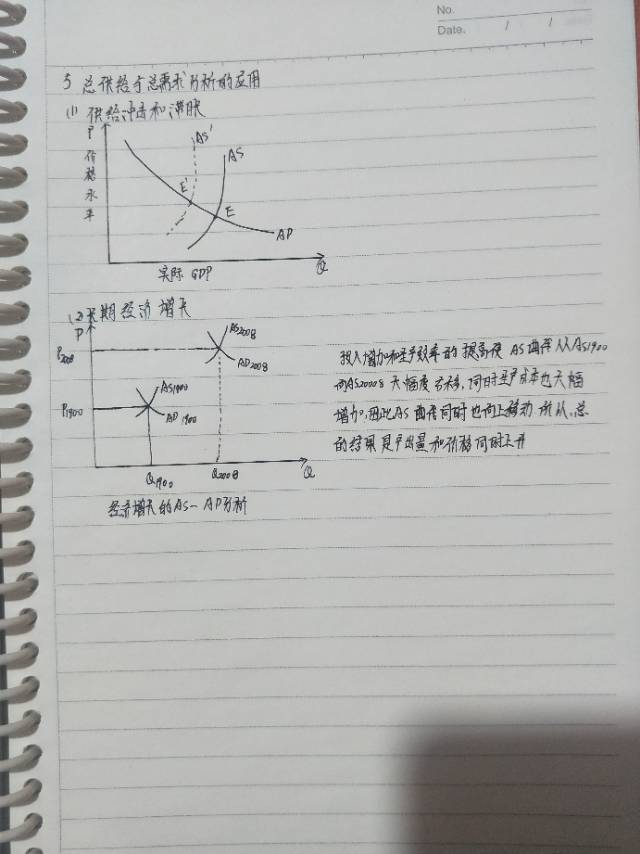 No.
Date. / /
5 总供给于总需求分析的应用
(1) 供给冲击和滞胀
P
价格水平
AS'
AS
E'
E
AD
实际 GDP
Q
(2) 长期经济增长
P
AS2008
P2008
AD2008
AS1900
P1900
AD1900
Q1900
Q2008
Q
经济增长的AS-AD分析
投入增加和生产效率的提高使 AS曲线从AS1900
向AS20008大幅度右移,同时生产成本也大幅
增加,因此AS曲线同时也向上移动 所以.总
的结果是产出量和价格同时上升